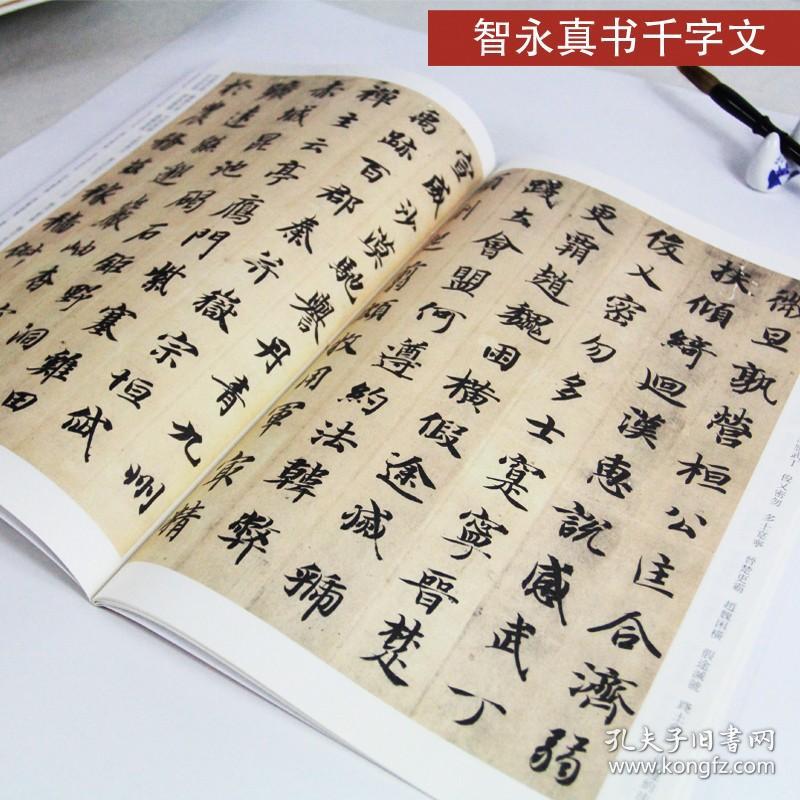 智永真书千字文
微旦孰營桓公匡合濟弱
扶傾綺迴漢惠說感武丁
俊乂密勿多士寔寧晉楚
更霸趙魏困橫假途滅虢
踐土會盟何遵約法韓弊
煩刑起翦頗牧用軍最精
宣威沙漠馳譽丹青九州
禹跡百郡秦并嶽宗恒岱
禪主云亭鴈門紫塞雞田
赤城昆池碣石鉅野洞
曠遠綿邈巖岫杳
於農務茲稼穡俶
俊乂密勿 多士寔寧 晉楚更霸 趙魏困橫 假途滅虢 踐土
孔夫子旧书网
www.kongfz.com